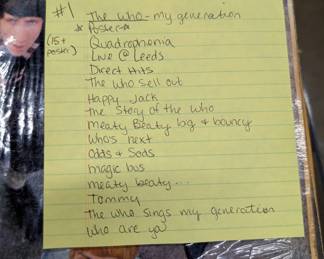 #1 The Who - my generation
* Poster *
(15+ poster)
Quadrophenia
Live @ Leeds
Direct Hits
The who sell out
Happy Jack
the Story of the who
meaty Beaty big & bouncy
who's next
Odds & Sods
magic bus
meaty beaty...
Tommy
The who sings my generation
who are ya